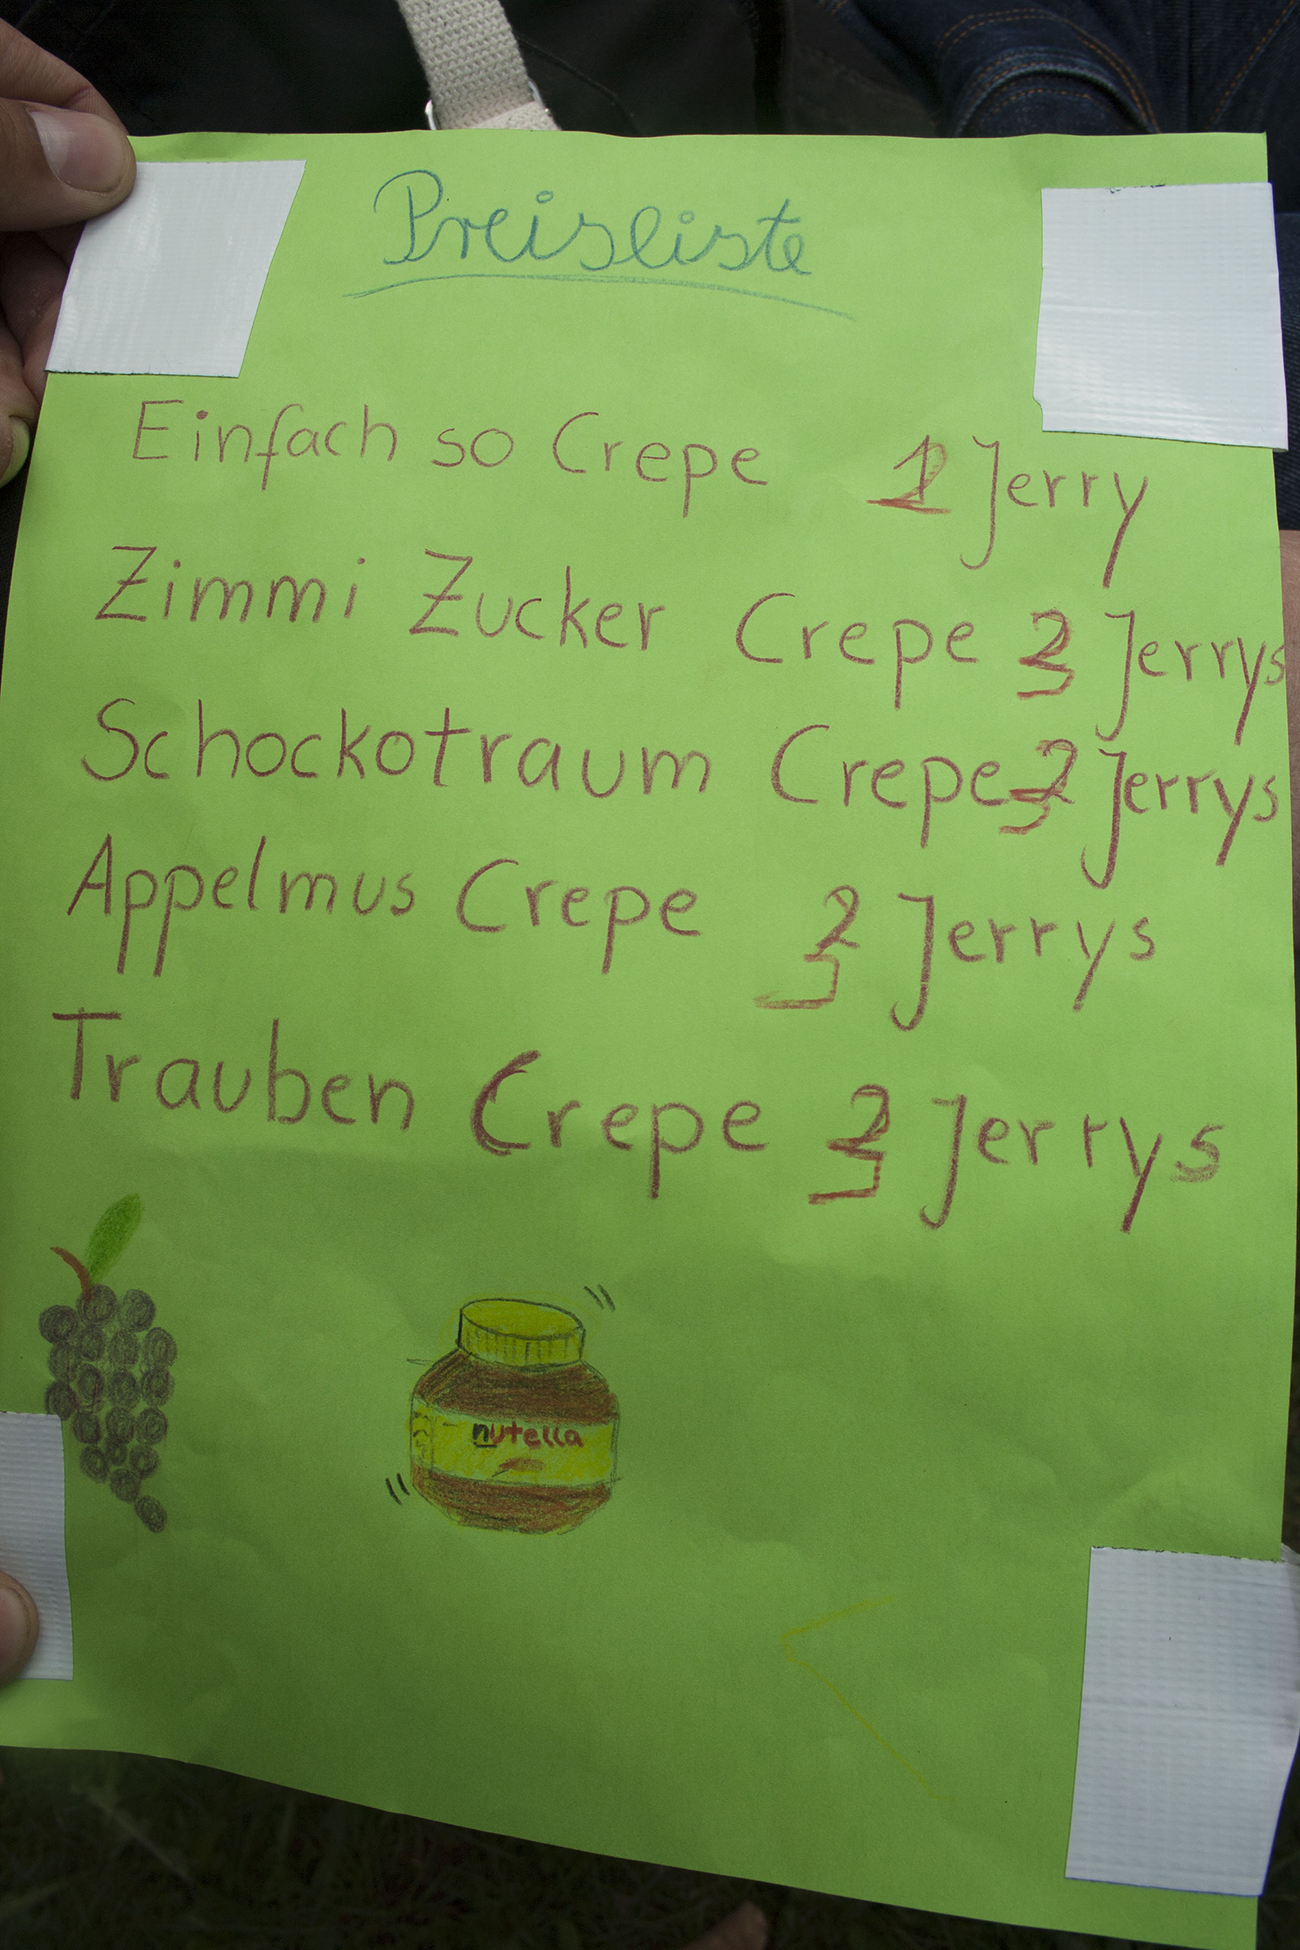 Preisliste
Einfach so Crepe 2 Jerry
Zimmi Zucker Crepe 3 Jerrys
Schockotraum Crepe 3 Jerrys
Appelmus Crepe 3 Jerrys
Trauben Crepe 3 Jerrys
nutella